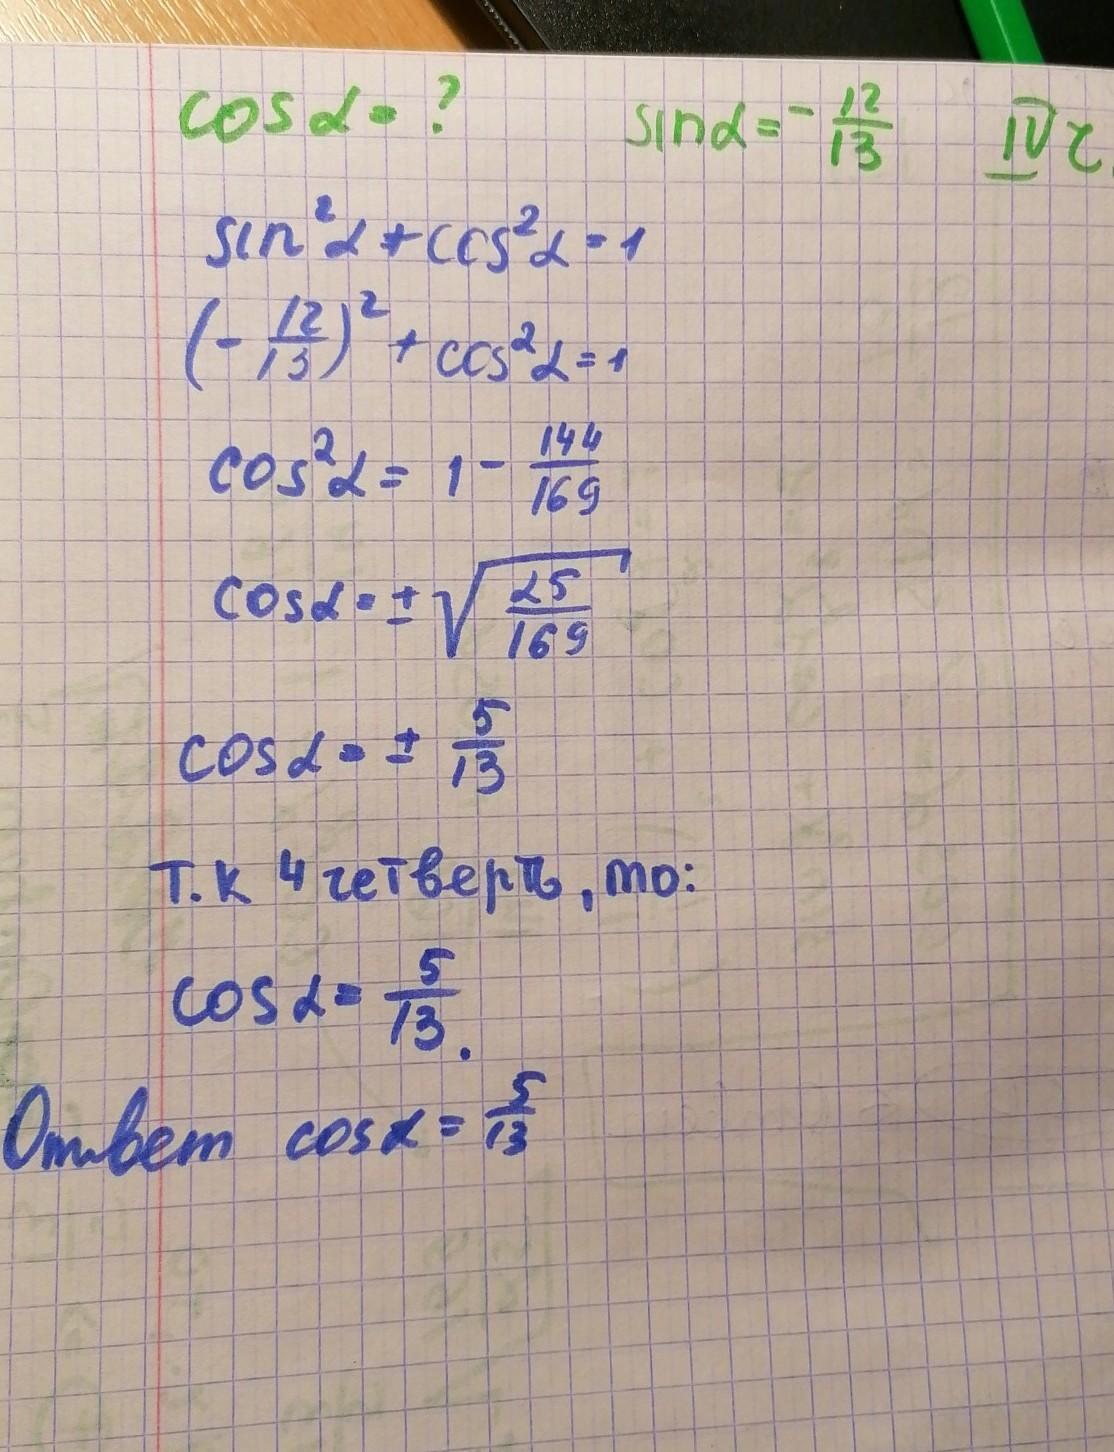 cosα = ? sinα = - 12/13 IV ч.
sin²α + cos²α = 1
(- 12/13)² + cos²α = 1
cos²α = 1 - 144/169
cosα = ± √25/169
cosα = ± 5/13
Т.к 4 четверть, то:
cosα = 5/13.
Ответ cosα = 5/13